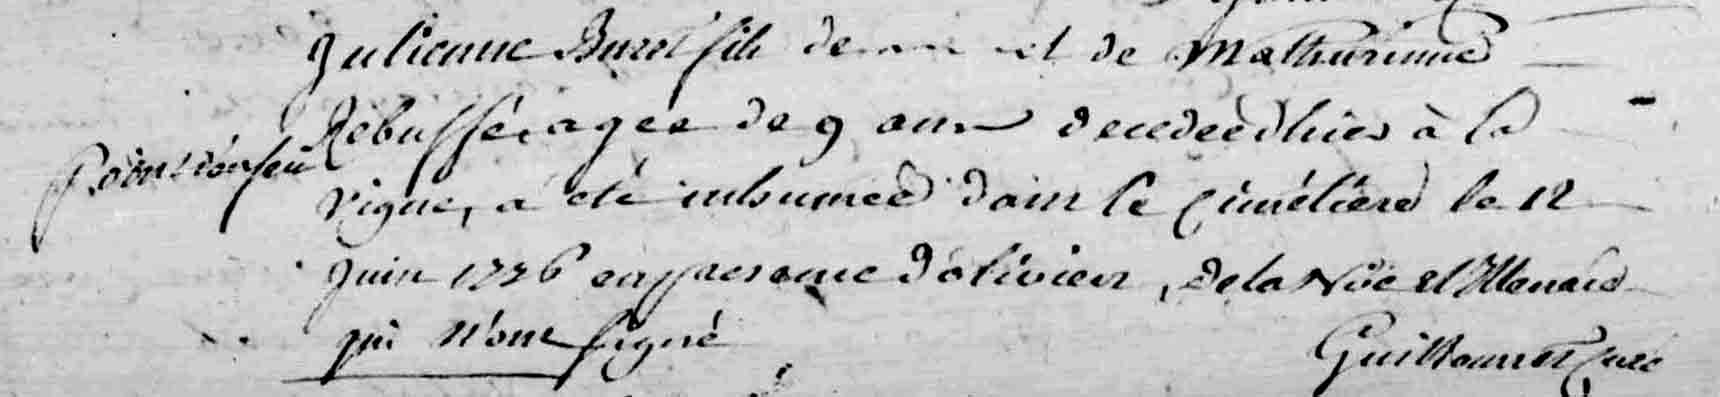 Julienne Buret fille de et de Mathurinne
Rebuffé, agée de 9 ans decedeé d'hier à la
vigne, a eté inhumeé dans le cimétiere le 12
juin 1776 en presence d'olivier, de la Noë et Menard
qui n'ont signé
Guillonnet Curé